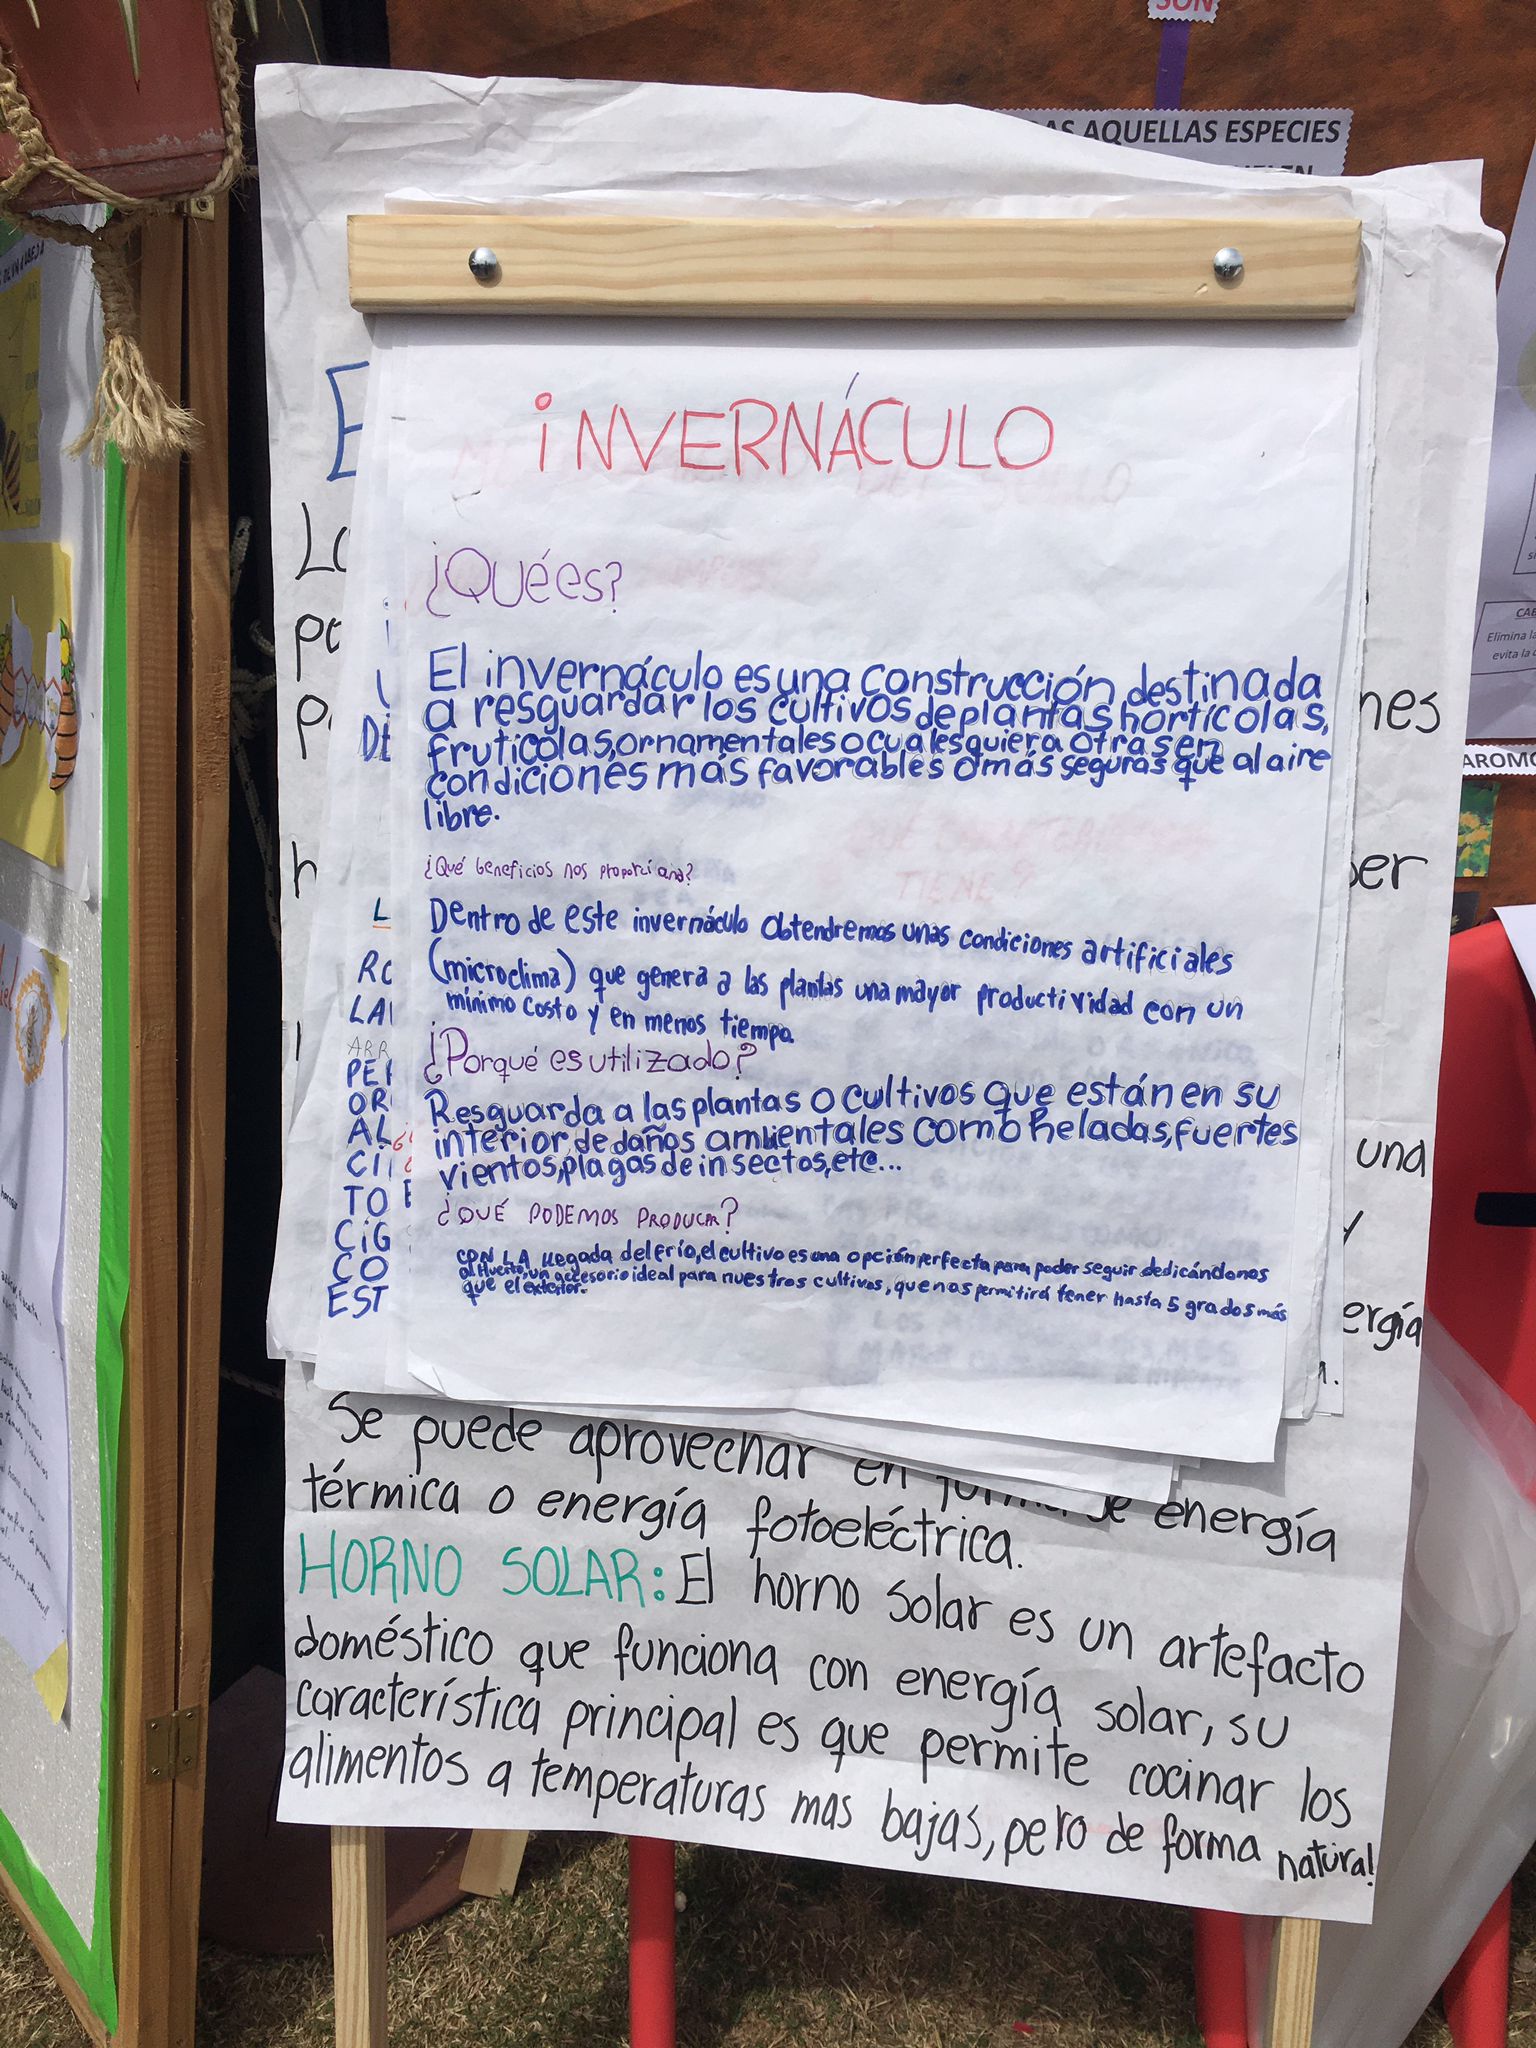 SON
AS AQUELLAS ESPECIES
iNVERNÁCULO
¿Qué es?
El invernáculo es una construcción destinada
a resguardar los cultivos de plantas hortícolas,
frutícolas, ornamentales o cualesquiera otras en
condiciones más favorables o más seguras que al aire
libre.
¿Qué beneficios nos proporciona?
Dentro de este invernáculo obtendremos unas condiciones artificiales
(microclima) que genera a las plantas una mayor productividad con un
mínimo costo y en menos tiempo.
¿Porqué es utilizado?
Resguarda a las plantas o cultivos que están en su
interior, de daños ambientales como heladas, fuertes
vientos, plagas de insectos, etc...
¿QUÉ PODEMOS PRODUCIR?
CON LA llegada del frío, el cultivo es una opción perfecta para poder seguir dedicándonos
al Huerto, un accesorio ideal para nuestros cultivos, que nos permitirá tener hasta 5 grados más
que el exterior.
nes
ber
una
y
ergía
Se puede aprovechar en forma de energía
térmica o energía fotoeléctrica.
HORNO SOLAR: El horno solar es un artefacto
doméstico que funciona con energía solar, su
característica principal es que permite cocinar los
alimentos a temperaturas mas bajas, pero de forma natural
E
Lo
po
p
h
DE
L
RO
LA
ARR
PE
OR
AL
CI
TO
CiG
CO
EST
CAB
Elimina la
evita la
AROMO